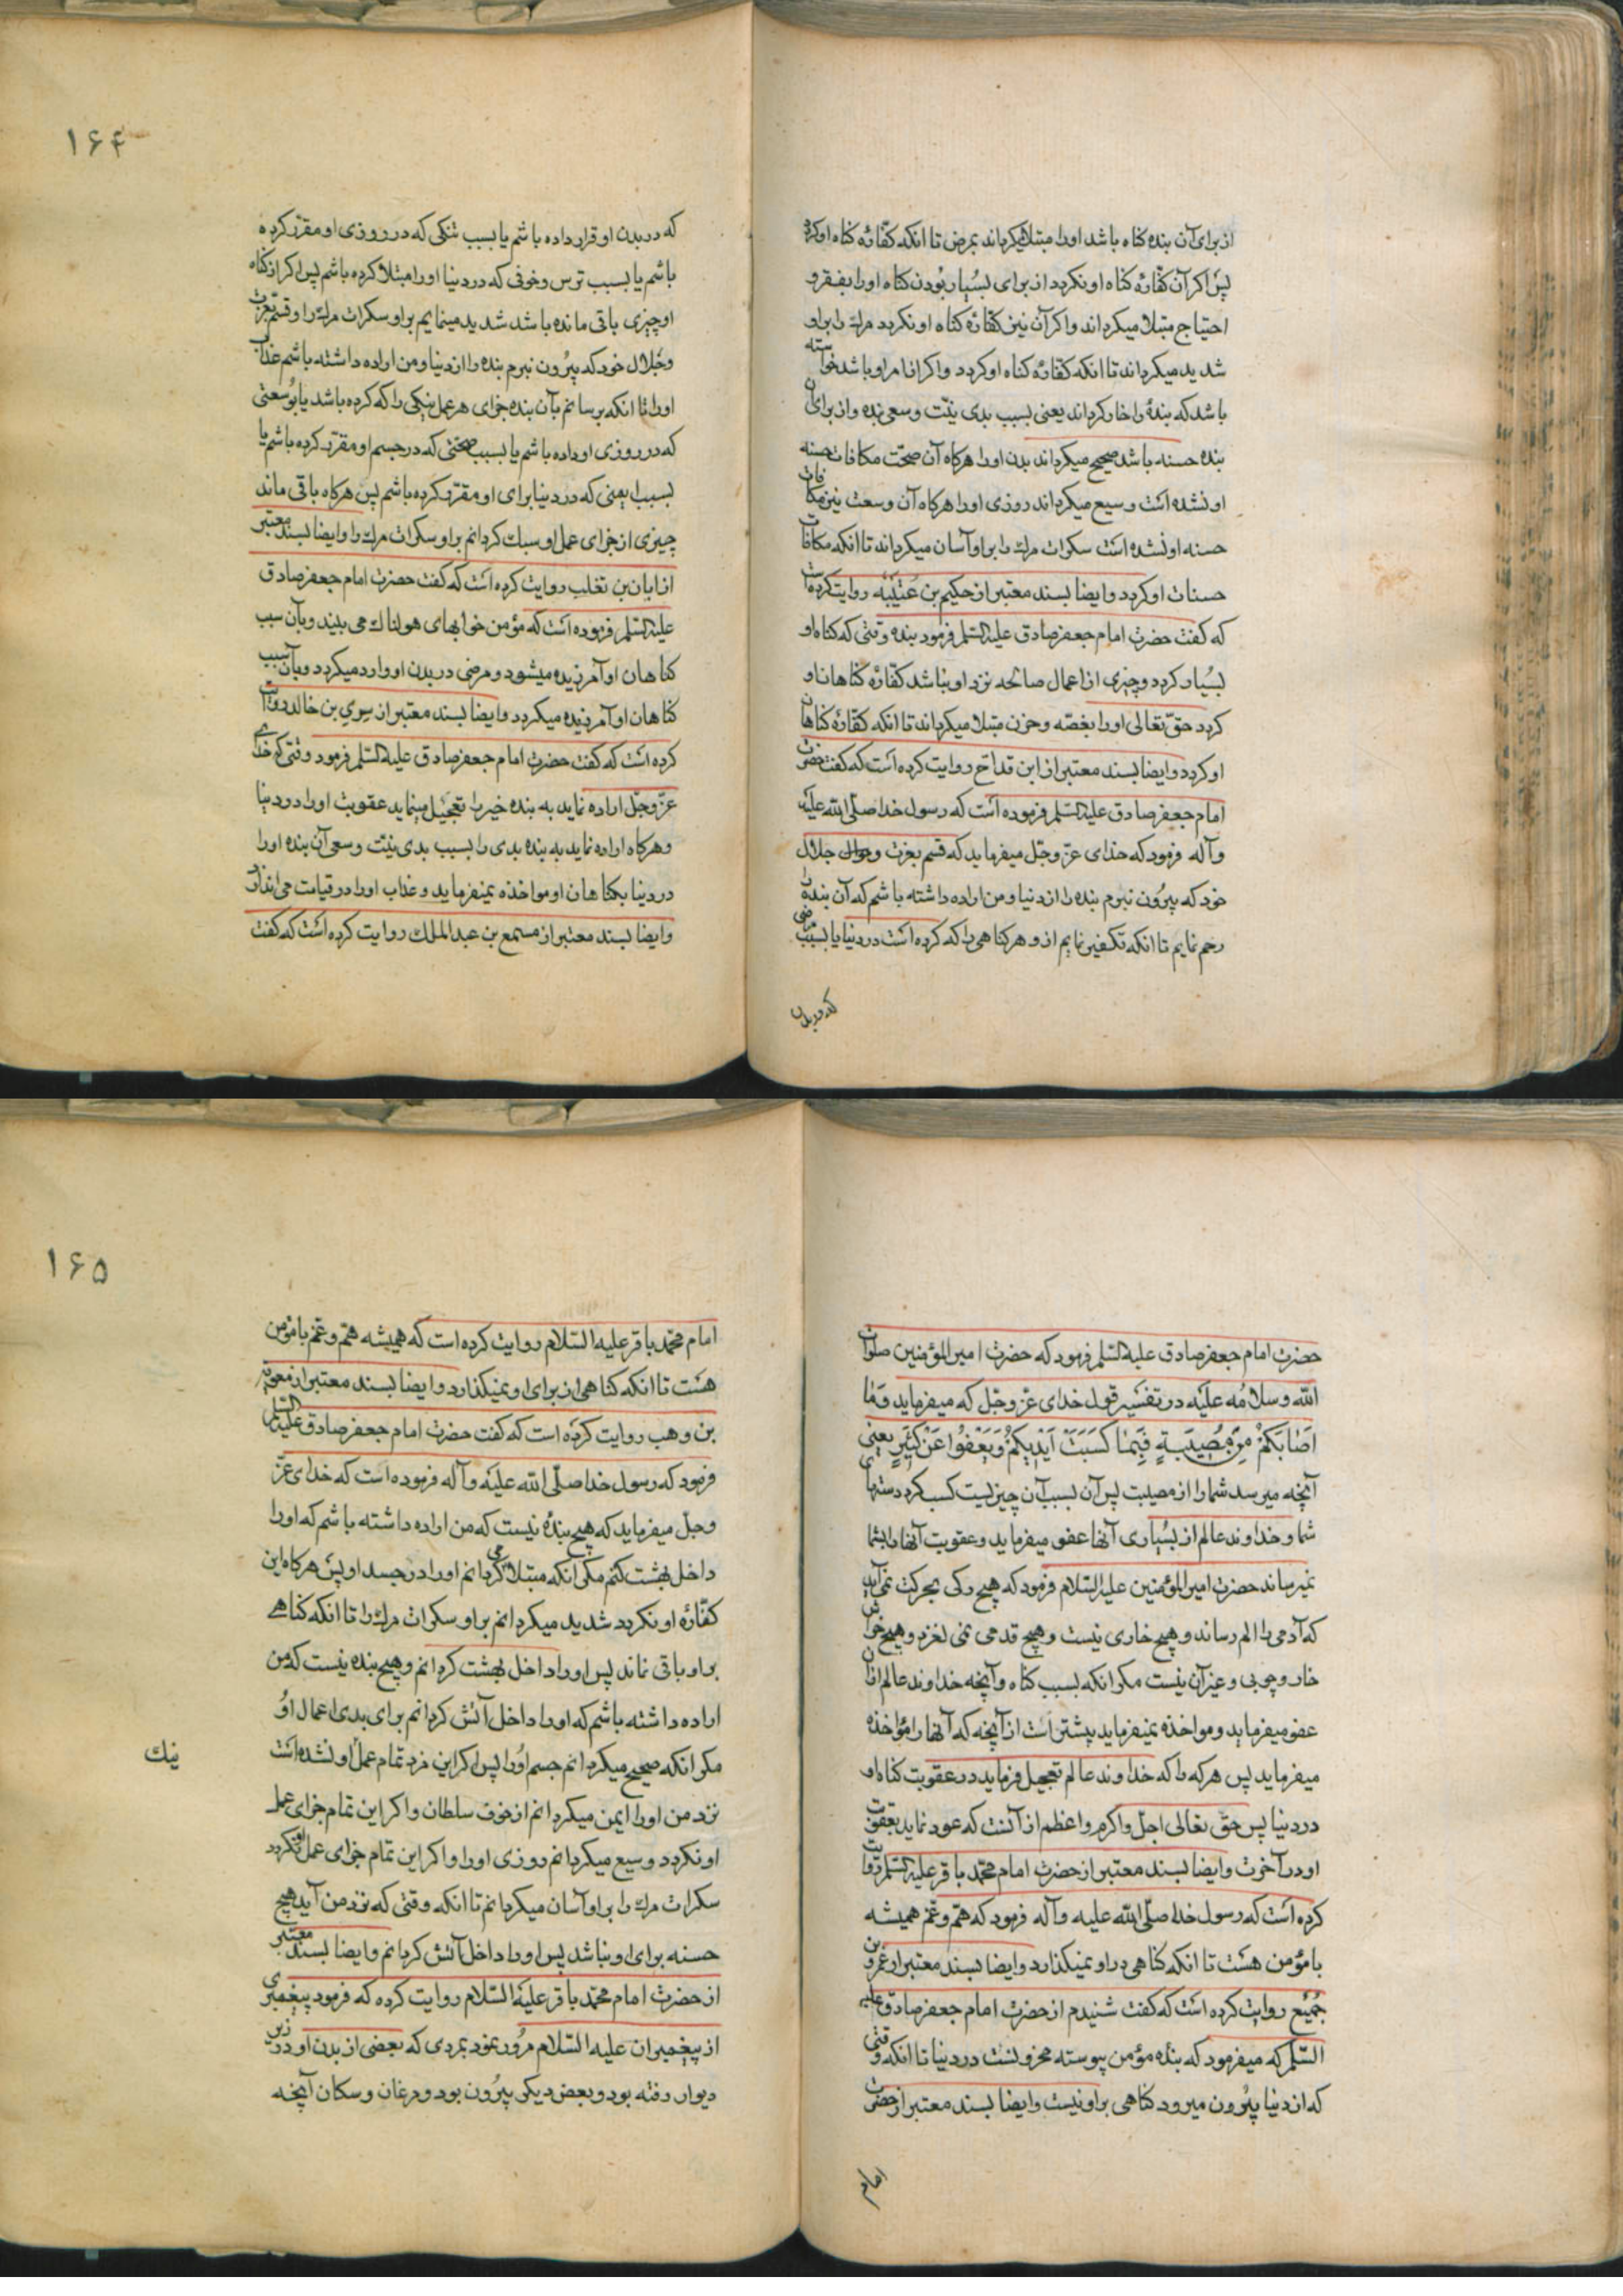 از برای آن بنده کناه باشد اورا مبتلا میکرداند بمرض تا انکه کفّارهٔ کناه او کردد
پس اکر آن کفّارهٔ کناه او نکردد از برای بسیار بودن کناه اورا بفقر و
احتیاج مبتلا میکرداند و اکر آن نیز کفّارهٔ کناه او نکردد مرك را بر او
شدید میکرداند تا انکه کفّارهٔ کناه او کردد و اکر انا مراو باشد خواسته
باشد که بندهٔ را خار کرداند یعنی بسبب بدی نیّت و سعی بنده و از برای آن
بنده حسنه باشد صحیح میکرداند بدن اورا هرکاه آن صحّت مکافات حسنه
او نشده است وسیع میکرداند روزی اورا هرکاه آن وسعت نیز مکافات
حسنه او نشده است سکرات مرك را بر او آسان میکرداند تا انکه مکافات
حسنات او کردد و ایضا بسند معتبر از حکیم بن عتیبه روایت کرده است
که کفت حضرت امام جعفر صادق علیه السلم فرمود بنده وقتی که کناه او
بسیار کردد و چیزی از اعمال صالحه نزد او نباشد کفّارهٔ کناهان او
کردد حقّ تعالی اورا بغصّه و حزن مبتلا میکرداند تا انکه کفّارهٔ کناهان
او کردد و ایضا بسند معتبر از ابن قداح روایت کرده است که کفت حضرت
امام جعفر صادق علیه السلم فرموده است که رسول خدا صلّی الله علیه
وآله فرمود که خدای عزّ وجّل میفرماید که قسم بعزت و جلال
خود که بیرون نبرم بنده را از دنیا و من اراده داشته باشم که آن بنده را
رحم نمایم تا انکه تکفیر نمایم از و هر کناهی را که کرده است در دنیا یا بسبب مرضی
که در بدن
۱۶۴
که در بدن او قرار داده باشم یا بسبب تنکی که در روزی او مقرّر کرده
باشم یا بسبب ترس و خوفی که در دنیا اورا مبتلا کرده باشم پس اکر از کناه
او چیزی باقی مانده باشد شدید مینمایم بر او سکرات مرك را و قسم بعزت
وجلال خود که بیرون نبرم بنده را از دنیا و من اراده داشته باشم عذاب
اورا تا انکه برسانم بآن بنده جزای هر عمل نیکی را که کرده باشد یا بوسعتی
که در روزی او داده باشم یا بسبب صحّتی که در جسم او مقرّر کرده باشم یا
بسبب ایمنی که در دنیا برای او مقرّر کرده باشم پس هرکاه باقی ماند
چیزی از جزای عمل او سبك کردانم بر او سکرات مرك را و ایضا بسند معتبر
از ابان بن تغلب روایت کرده است که کفت حضرت امام جعفر صادق
علیه السلم فرموده است که مؤمن خوابهای هولناك می بیند و بآن سبب
کناهان او آمرزیده میشود و مرضی در بدن او وارد میکردد و بآن سبب
کناهان او آمرزیده میکردد و ایضا بسند معتبر از سری بن خالد روایت
کرده است که کفت حضرت امام جعفر صادق علیه السلم فرمود وقتی که خدای
عزّ وجّل اراده نماید به بنده خیر را تعجیل مینماید عقوبت اورا در دنیا
و هرکاه اراده نماید به بنده بدی را بسبب بدی نیّت و سعی آن بنده اورا
در دنیا بکناهان او مواخذه نمیفرماید و عذاب اورا در قیامت می اندازد
و ایضا بسند معتبر از مسمع بن عبد الملك روایت کرده است که کفت
حضرت امام جعفر صادق علیه السلم فرمود که حضرت امیر المؤمنین صلوات
الله وسلامُه علیه در تفسیر قول خدای عزّ وجّل که میفرماید وَمٰا
اَصٰابَکُمْ مِنْ مُصِیبَةٍ فَبِمٰا کَسَبَتْ اَیْدِیکُمْ وَیَعْفُوا عَنْ کَثِیرٍ یعنی
آنچه میرسد شما را از مصیبت پس آن بسبب آن چیزیست کسب کرد دستهای
شما و خداوند عالم از بسیاری آنها عفو میفرماید و عقوبت آنها را بشما
نمیرساند حضرت امیر المؤمنین علیه السّلام فرمود که هیچ رکی بحرکت نمی آید
که آدمی را الم رساند و هیچ خاری نیست و هیچ قدمی نمی لغزد و هیچ خراش
خار و چوبی و غیر آن نیست مکر انکه بسبب کناه و آنچه خداوند عالم از آن
عفو میفرماید و مواخذه نمیفرماید بیشتر است از آنچه که آنها را مؤاخذه
میفرماید پس هرکه را که خداوند عالم تعجیل فرماید در عقوبت کناه او
در دنیا پس حقّ تعالی اجلّ و اکرم و اعظم از آنست که عود نماید بعقوبت
او در آخرت و ایضا بسند معتبر از حضرت امام محمّد باقر علیه السلم روایت
کرده است که رسول خدا صلّی الله علیه وآله فرمود که همّ و غمّ همیشه
با مؤمن هست تا انکه کناهی در او نمیکذارد و ایضا بسند معتبر از عمرو بن
جُمَیع روایت کرده است که کفت شنیدم از حضرت امام جعفر صادق علیه
السّلم که میفرمود که بنده مؤمن پیوسته محزونست در دنیا تا انکه وقتی
که از دنیا بیرون میرود کناهی بر او نیست و ایضا بسند معتبر از حضرت
امام
۱۶۵
امام محمّد باقر علیه السّلام روایت کرده است که همیشه همّ و غمّ با مؤمن
هست تا انکه کناهی از برای او نمیکذارد و ایضا بسند معتبر از معویة
بن وهب روایت کرده است که کفت حضرت امام جعفر صادق علیه السلم
فرمود که رسول خدا صلّی الله علیه وآله فرموده است که خدای عزّ
وجلّ میفرماید که هیچ بندهٔ نیست که من اراده داشته باشم که اورا
داخل بهشت کنم مکر انکه مبتلا می کردانم اورا در جسد او پس هرکاه این
کفّارهٔ او نکردد شدید میکردانم بر او سکرات مرك را تا انکه کناهے
بر او باقی نماند پس اورا داخل بهشت کردانم و هیچ بنده نیست که من
اراده داشته باشم که اورا داخل آتش کردانم برای بدی اعمال او
مکر انکه صحیح میکردانم جسم اورا پس اکر این مزد تمام عمل او نشده است
نیك
نزد من اورا ایمن میکردانم از خوف سلطان و اکر این تمام جزای عمل
او نکردد وسیع میکردانم روزی اورا و اکر این تمام جزای عمل او نکردد
سکرات مرك را بر او آسان میکردانم تا انکه وقتی که نزد من آید هیچ
حسنه برای او نباشد پس اورا داخل آتش کردانم و ایضا بسند معتبر
از حضرت امام محمّد باقر علیه السّلام روایت کرده که فرمود پیغمبری
از پیغمبران علیه السّلام مرور نمود بمردی که بعضی از بدن او در زیر
دیوار رفته بود و بعض دیکر بیرون بود و مرغان و سکان آنچه